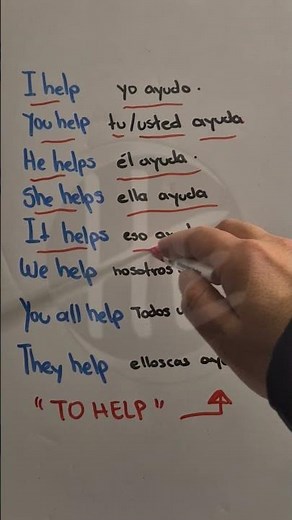 I help yo ayudo.
You help tu/usted ayuda
He helps él ayuda.
She helps ella ayuda
It helps eso
We help nosotros
You all help Todos
They help ellos/as
"TO HELP"